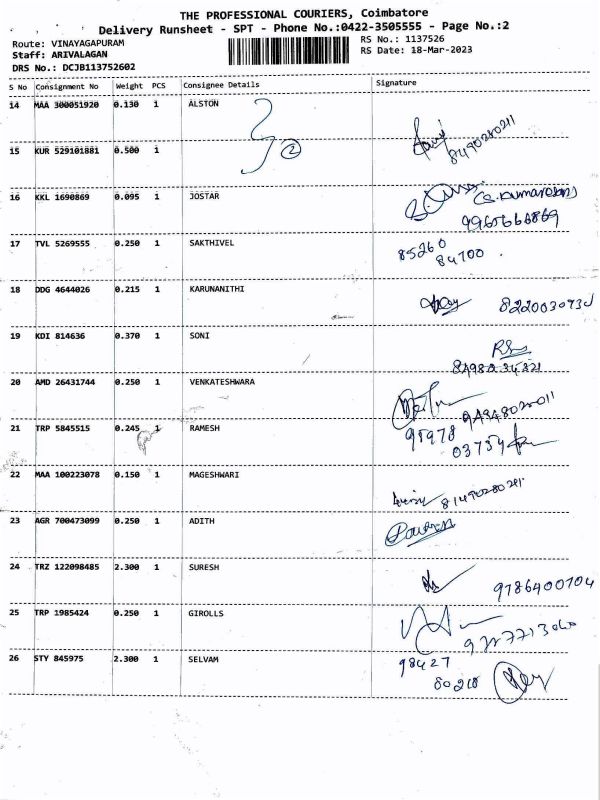 THE PROFESSIONAL COURIERS, Coimbatore
Delivery Runsheet - SPT - Phone No.:0422-3505555 - Page No.:2
Route: VINAYAGAPURAM
Staff: ARIVALAGAN
DRS No.: DCJB113752602
RS No.: 1137526
RS Date: 18-Mar-2023
S No Consignment No Weight PCS Consignee Details Signature
14 MAA 300051920 0.130 1 ALSTON
15 KUR 529101881 0.500 1 2
16 KKL 1690869 0.095 1 JOSTAR
9965666869
17 TVL 5269555 0.250 1 SAKTHIVEL
85260
84700
18 DDG 4644026 0.215 1 KARUNANITHI
19 KDI 814636 0.370 1 SONI
20 AMD 26431744 0.250 1 VENKATESHWARA
21 TRP 5845515 0.245 1 RAMESH
95978
03754
22 MAA 100223078 0.150 1 MAGESHWARI
23 AGR 700473099 0.250 1 ADITH
24 TRZ 122098485 2.300 1 SURESH
9786400704
25 TRP 1985424 0.250 1 GIROLLS
26 STY 845975 2.300 1 SELVAM
98427
80218